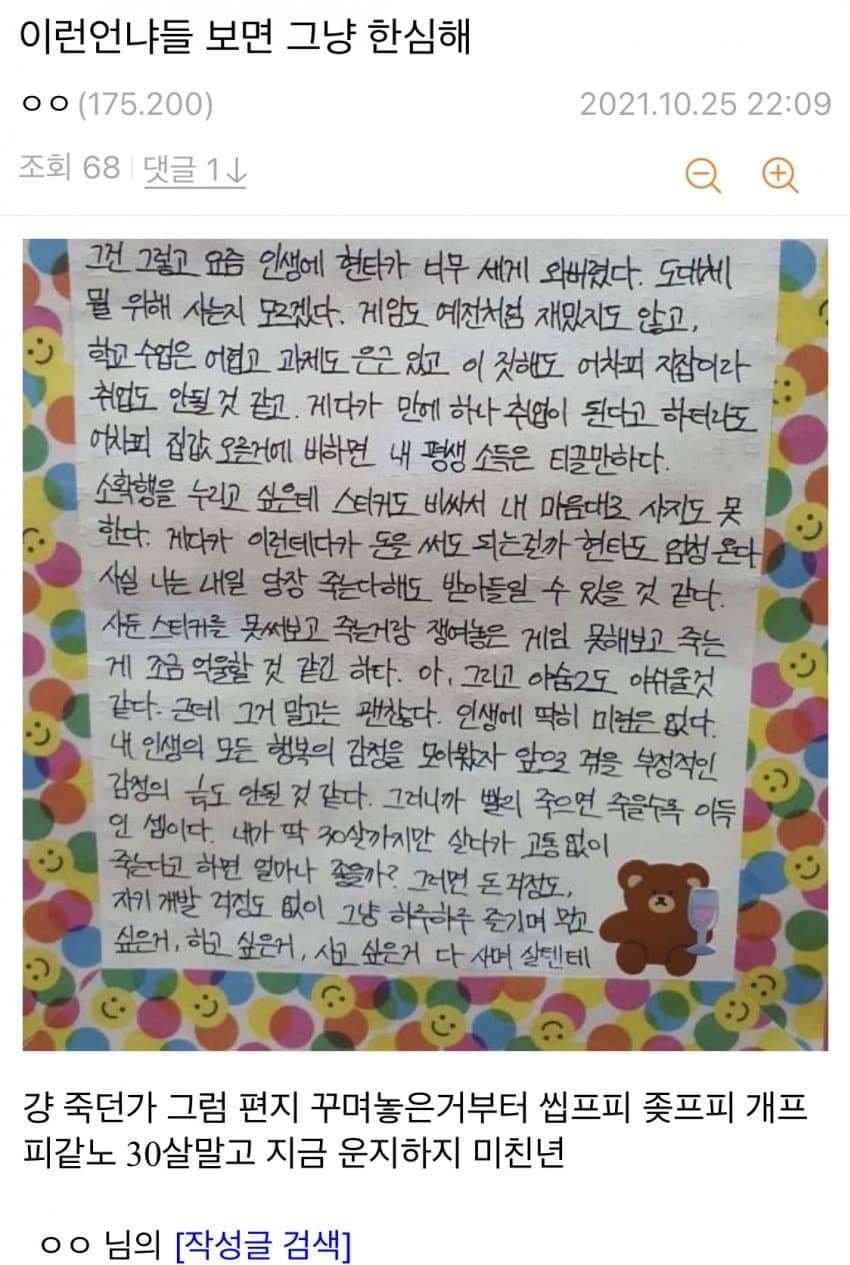 이런언냐들 보면 그냥 한심해
ㅇㅇ (175.200)
2021.10.25 22:09
조회 68 댓글 1↓
그건 그렇고 요즘 인생에 현타가 너무 세게 와버렸다. 도대체
뭘 위해 사는지 모르겠다. 게임도 예전처럼 재밌지도 않고,
학교 수업은 어렵고 과제도 은근 있고 이 짓해도 어차피 지잡이라
취업도 안될 것 같고. 게다가 만에 하나 취업이 된다고 하더라도
어차피 집값 오른거에 비하면 내 평생 소득은 티끌만하다.
소확행을 누리고 싶은데 스티커도 비싸서 내 마음대로 사지도 못
한다. 게다가 이런데다가 돈을 써도 되는건가 현타도 엄청 온다
사실 나는 내일 당장 죽는다해도 받아들일 수 있을 것 같다.
사둔 스티커를 못써보고 죽는거랑 쟁여놓은 게임 못해보고 죽는
게 조금 억울할 것 같긴 하다. 아, 그리고 야숨2도 아쉬울것
같다. 근데 그거 말고는 괜찮다. 인생에 딱히 미련은 없다.
내 인생의 모든 행복의 감정을 모아봤자 앞으로 겪을 부정적인
감정의 늪도 안될 것 같다. 그러니까 빨리 죽으면 죽을수록 이득
인 셈이다. 내가 딱 30살까지만 살다가 고통 없이
죽는다고 하면 얼마나 좋을까? 그러면 돈 걱정도,
자기 개발 걱정도 없이 그냥 하루하루 즐기며 먹고
싶은거, 하고 싶은거, 사고 싶은거 다 사며 살텐데
걍 죽던가 그럼 편지 꾸며놓은거부터 씹프피 좆프피 개프
피같노 30살말고 지금 운지하지 미친년
ㅇㅇ 님의 [작성글 검색]